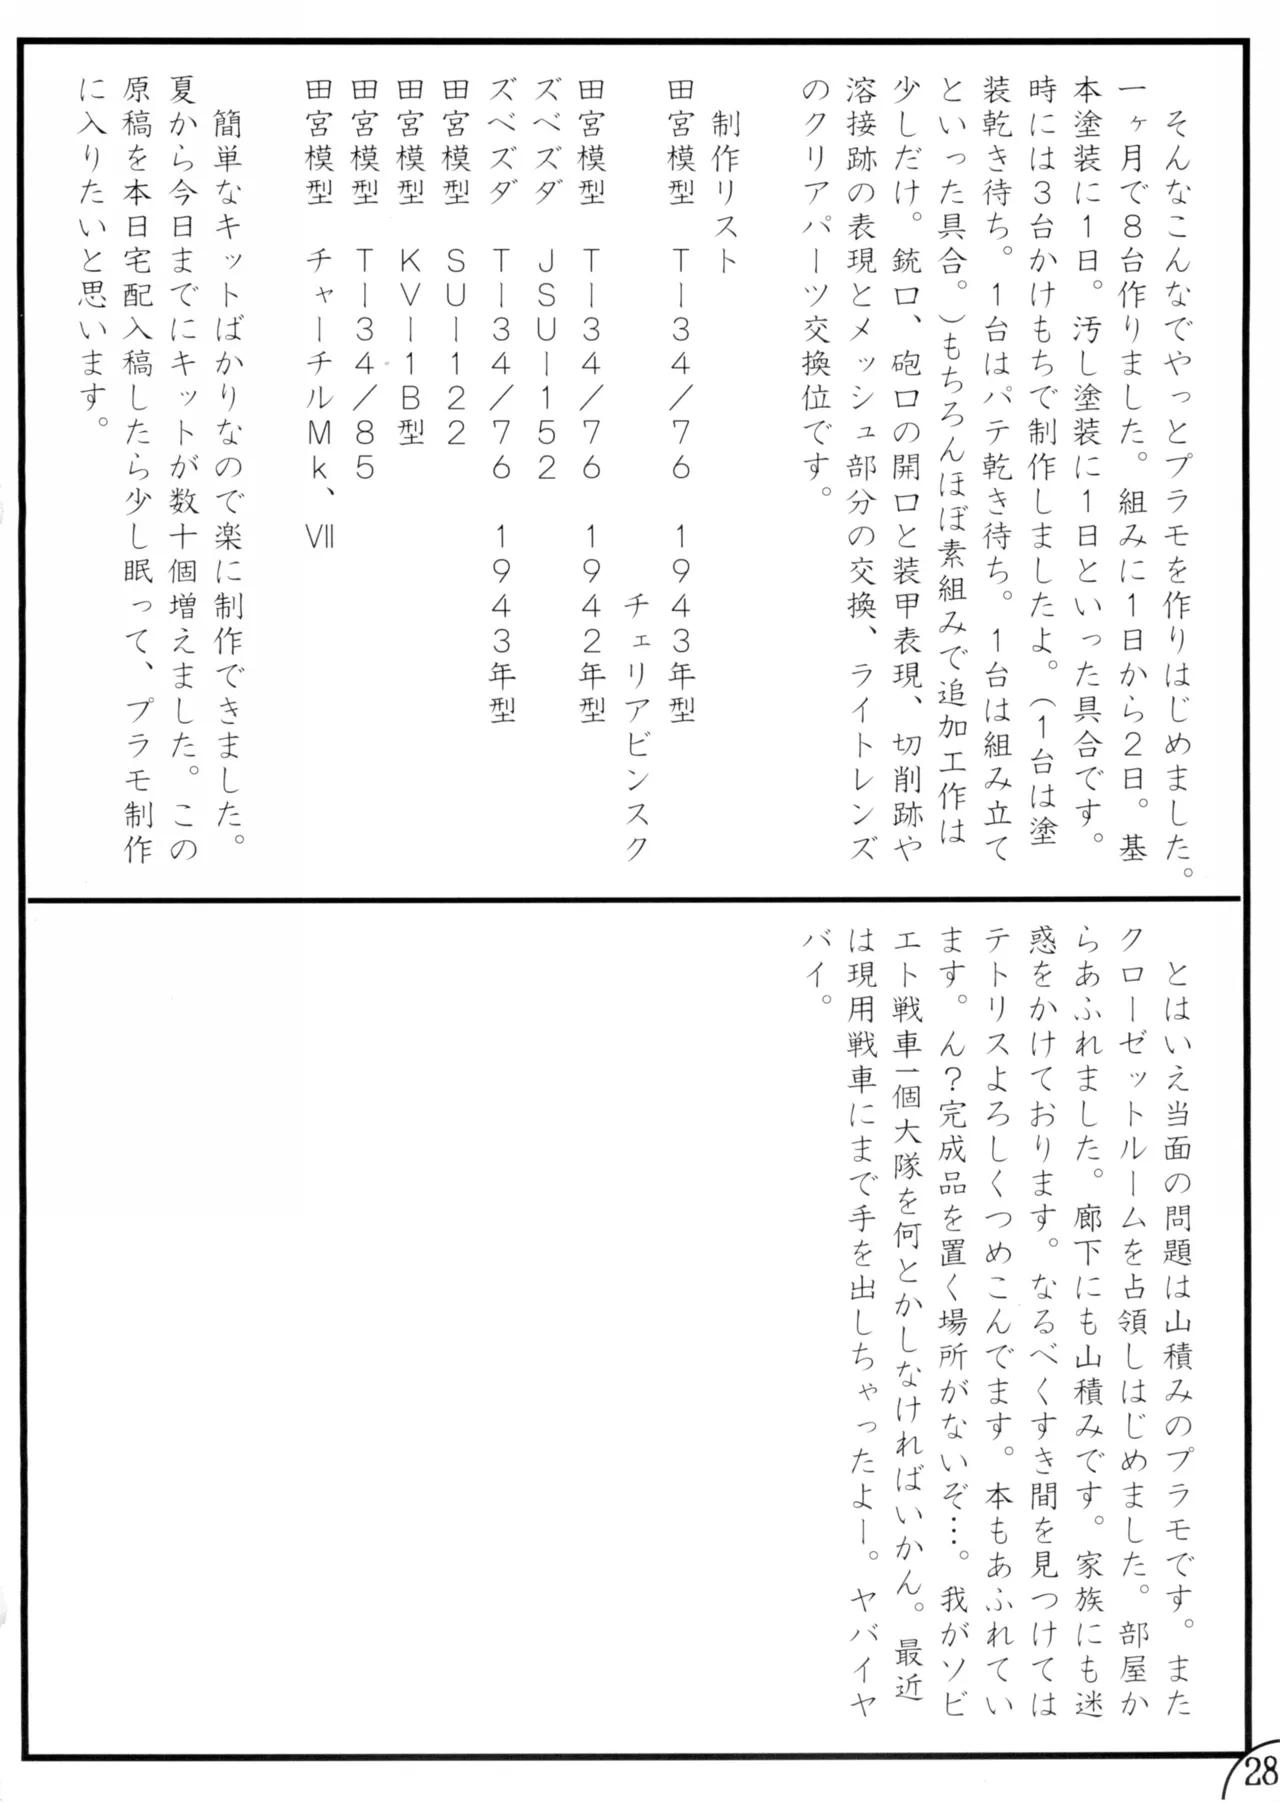 そんなこんなでやっとプラモを作りはじめました。
一ヶ月で8台作りました。組みに1日から2日。基
本塗装に1日。汚し塗装に1日といった具合です。
時には3台かけもちで制作しましたよ。(1台は塗
装乾き待ち。1台はパテ乾き待ち。1台は組み立て
といった具合。)もちろんほぼ素組みで追加工作は
少しだけ。銃口、砲口の開口と装甲表現、切削跡や
溶接跡の表現とメッシュ部分の交換、ライトレンズ
のクリアパーツ交換位です。
制作リスト
田宮模型 T-34/76 1943年型
チェリアビンスク
田宮模型 T-34/76 1942年型
ズベズダ JSU-152
ズベズダ T-34/76 1943年型
田宮模型 SU-122
田宮模型 KV-1B型
田宮模型 T-34/85
田宮模型 チャーチルMk、Ⅶ
簡単なキットばかりなので楽に制作できました。
夏から今日までにキットが数十個増えました。この
原稿を本日宅配入稿したら少し眠って、プラモ制作
に入りたいと思います。
とはいえ当面の問題は山積みのプラモです。また
クローゼットルームを占領しはじめました。部屋か
らあふれました。廊下にも山積みです。家族にも迷
惑をかけております。なるべくすき間を見つけては
テトリスよろしくつめこんでます。本もあふれてい
ます。ん?完成品を置く場所がないぞ…。我がソビ
エト戦車一個大隊を何とかしなければいかん。最近
は現用戦車にまで手を出しちゃったよー。ヤバイヤ
バイ。
28